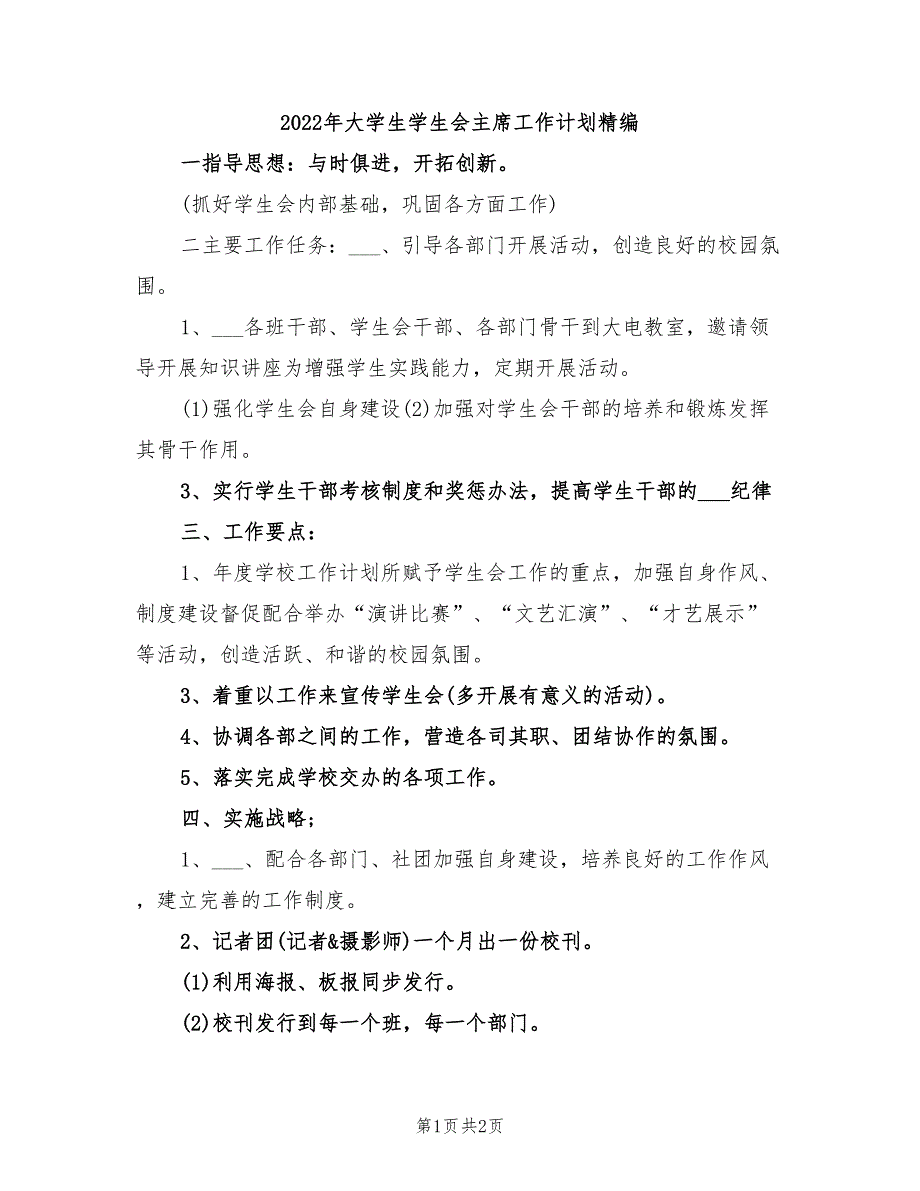 2022年大学生学生会主席工作计划精编
一指导思想：与时俱进，开拓创新。
(抓好学生会内部基础，巩固各方面工作)
二主要工作任务：___、引导各部门开展活动，创造良好的校园氛
围。
1、___各班干部、学生会干部、各部门骨干到大电教室，邀请领
导开展知识讲座为增强学生实践能力，定期开展活动。
(1)强化学生会自身建设(2)加强对学生会干部的培养和锻炼发挥
其骨干作用。
3、实行学生干部考核制度和奖惩办法，提高学生干部的___纪律
三、工作要点：
1、年度学校工作计划所赋予学生会工作的重点，加强自身作风、
制度建设督促配合举办“演讲比赛”、“文艺汇演”、“才艺展示”
等活动，创造活跃、和谐的校园氛围。
3、着重以工作来宣传学生会(多开展有意义的活动)。
4、协调各部之间的工作，营造各司其职、团结协作的氛围。
5、落实完成学校交办的各项工作。
四、实施战略；
1、___、配合各部门、社团加强自身建设，培养良好的工作作风
，建立完善的工作制度。
2、记者团(记者&摄影师)一个月出一份校刊。
(1)利用海报、板报同步发行。
(2)校刊发行到每一个班，每一个部门。
第1页共2页